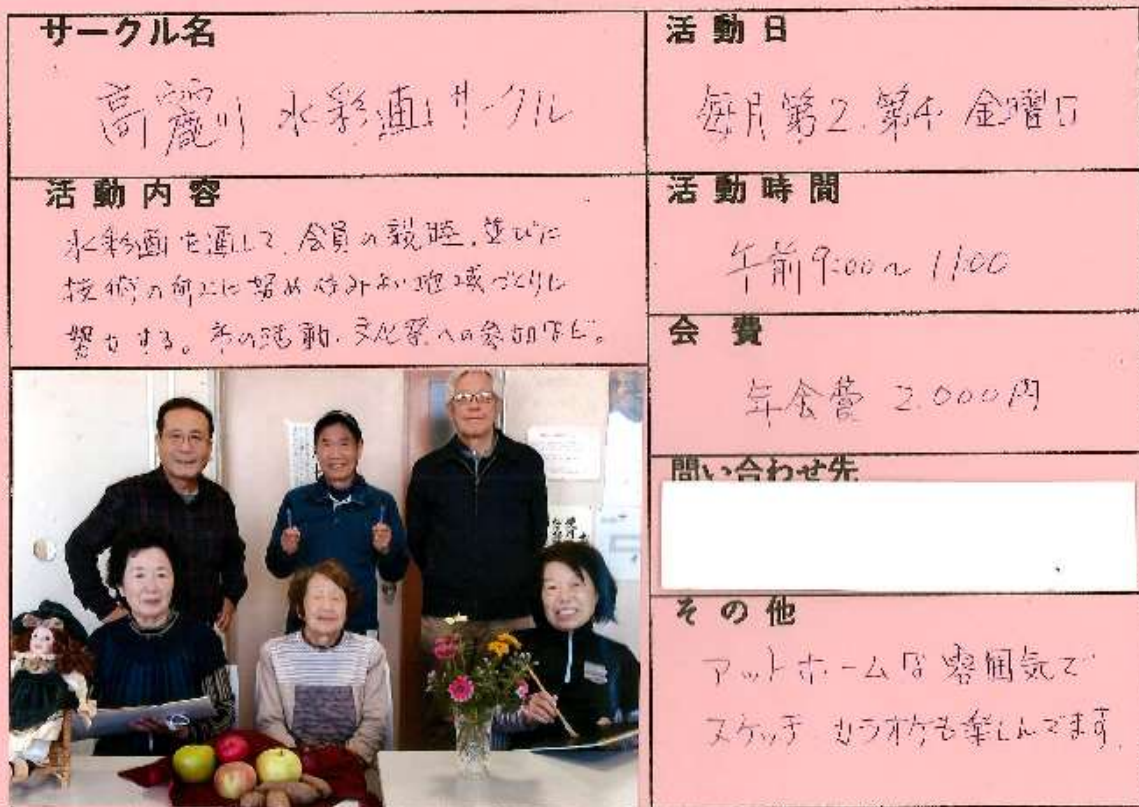 サークル名
高麗川 水彩画サークル
活動内容
水彩画を通して、会員の親睦、並びに
技術の向上に努め住みよい地域づくりに
努力する。その活動、文化祭への参加など。
活動日
毎月第2.第4 金曜日
活動時間
午前9:00〜11:00
会費
年会費 2.000円
問い合わせ先
その他
アットホームな雰囲気で
スケッチ カラオケも楽しんでます。